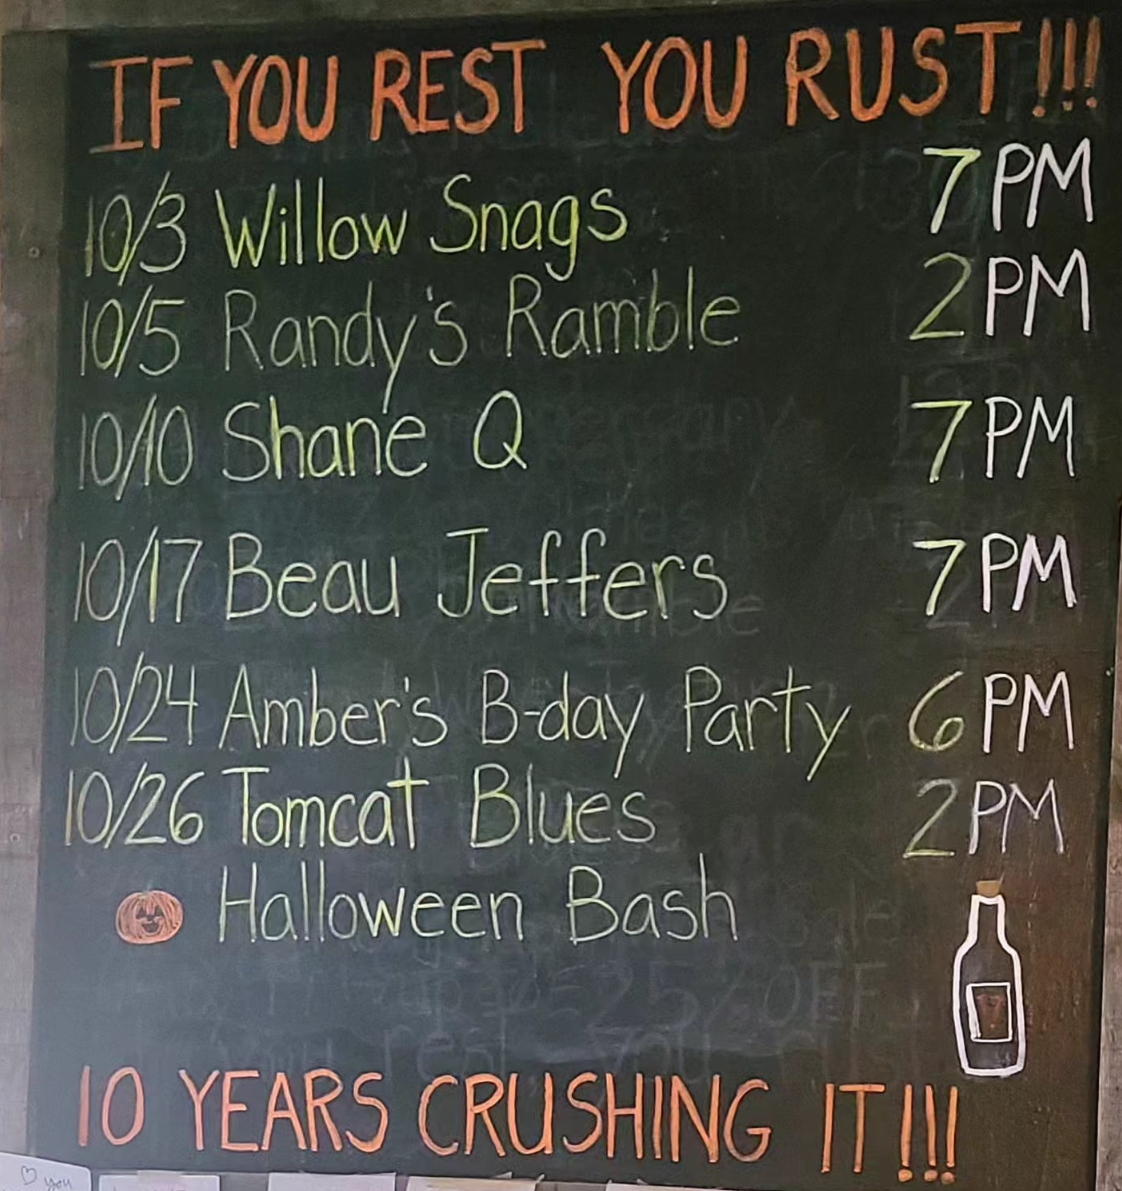 IF YOU REST YOU RUST!!!
10/3 Willow Snags 7PM
10/5 Randy's Ramble 2PM
10/10 Shane Q 7PM
10/17 Beau Jeffers 7PM
10/24 Amber's B-day Party 6PM
10/26 Tomcat Blues 2PM
Halloween Bash
25% OFF
10 YEARS CRUSHING IT!!!
you